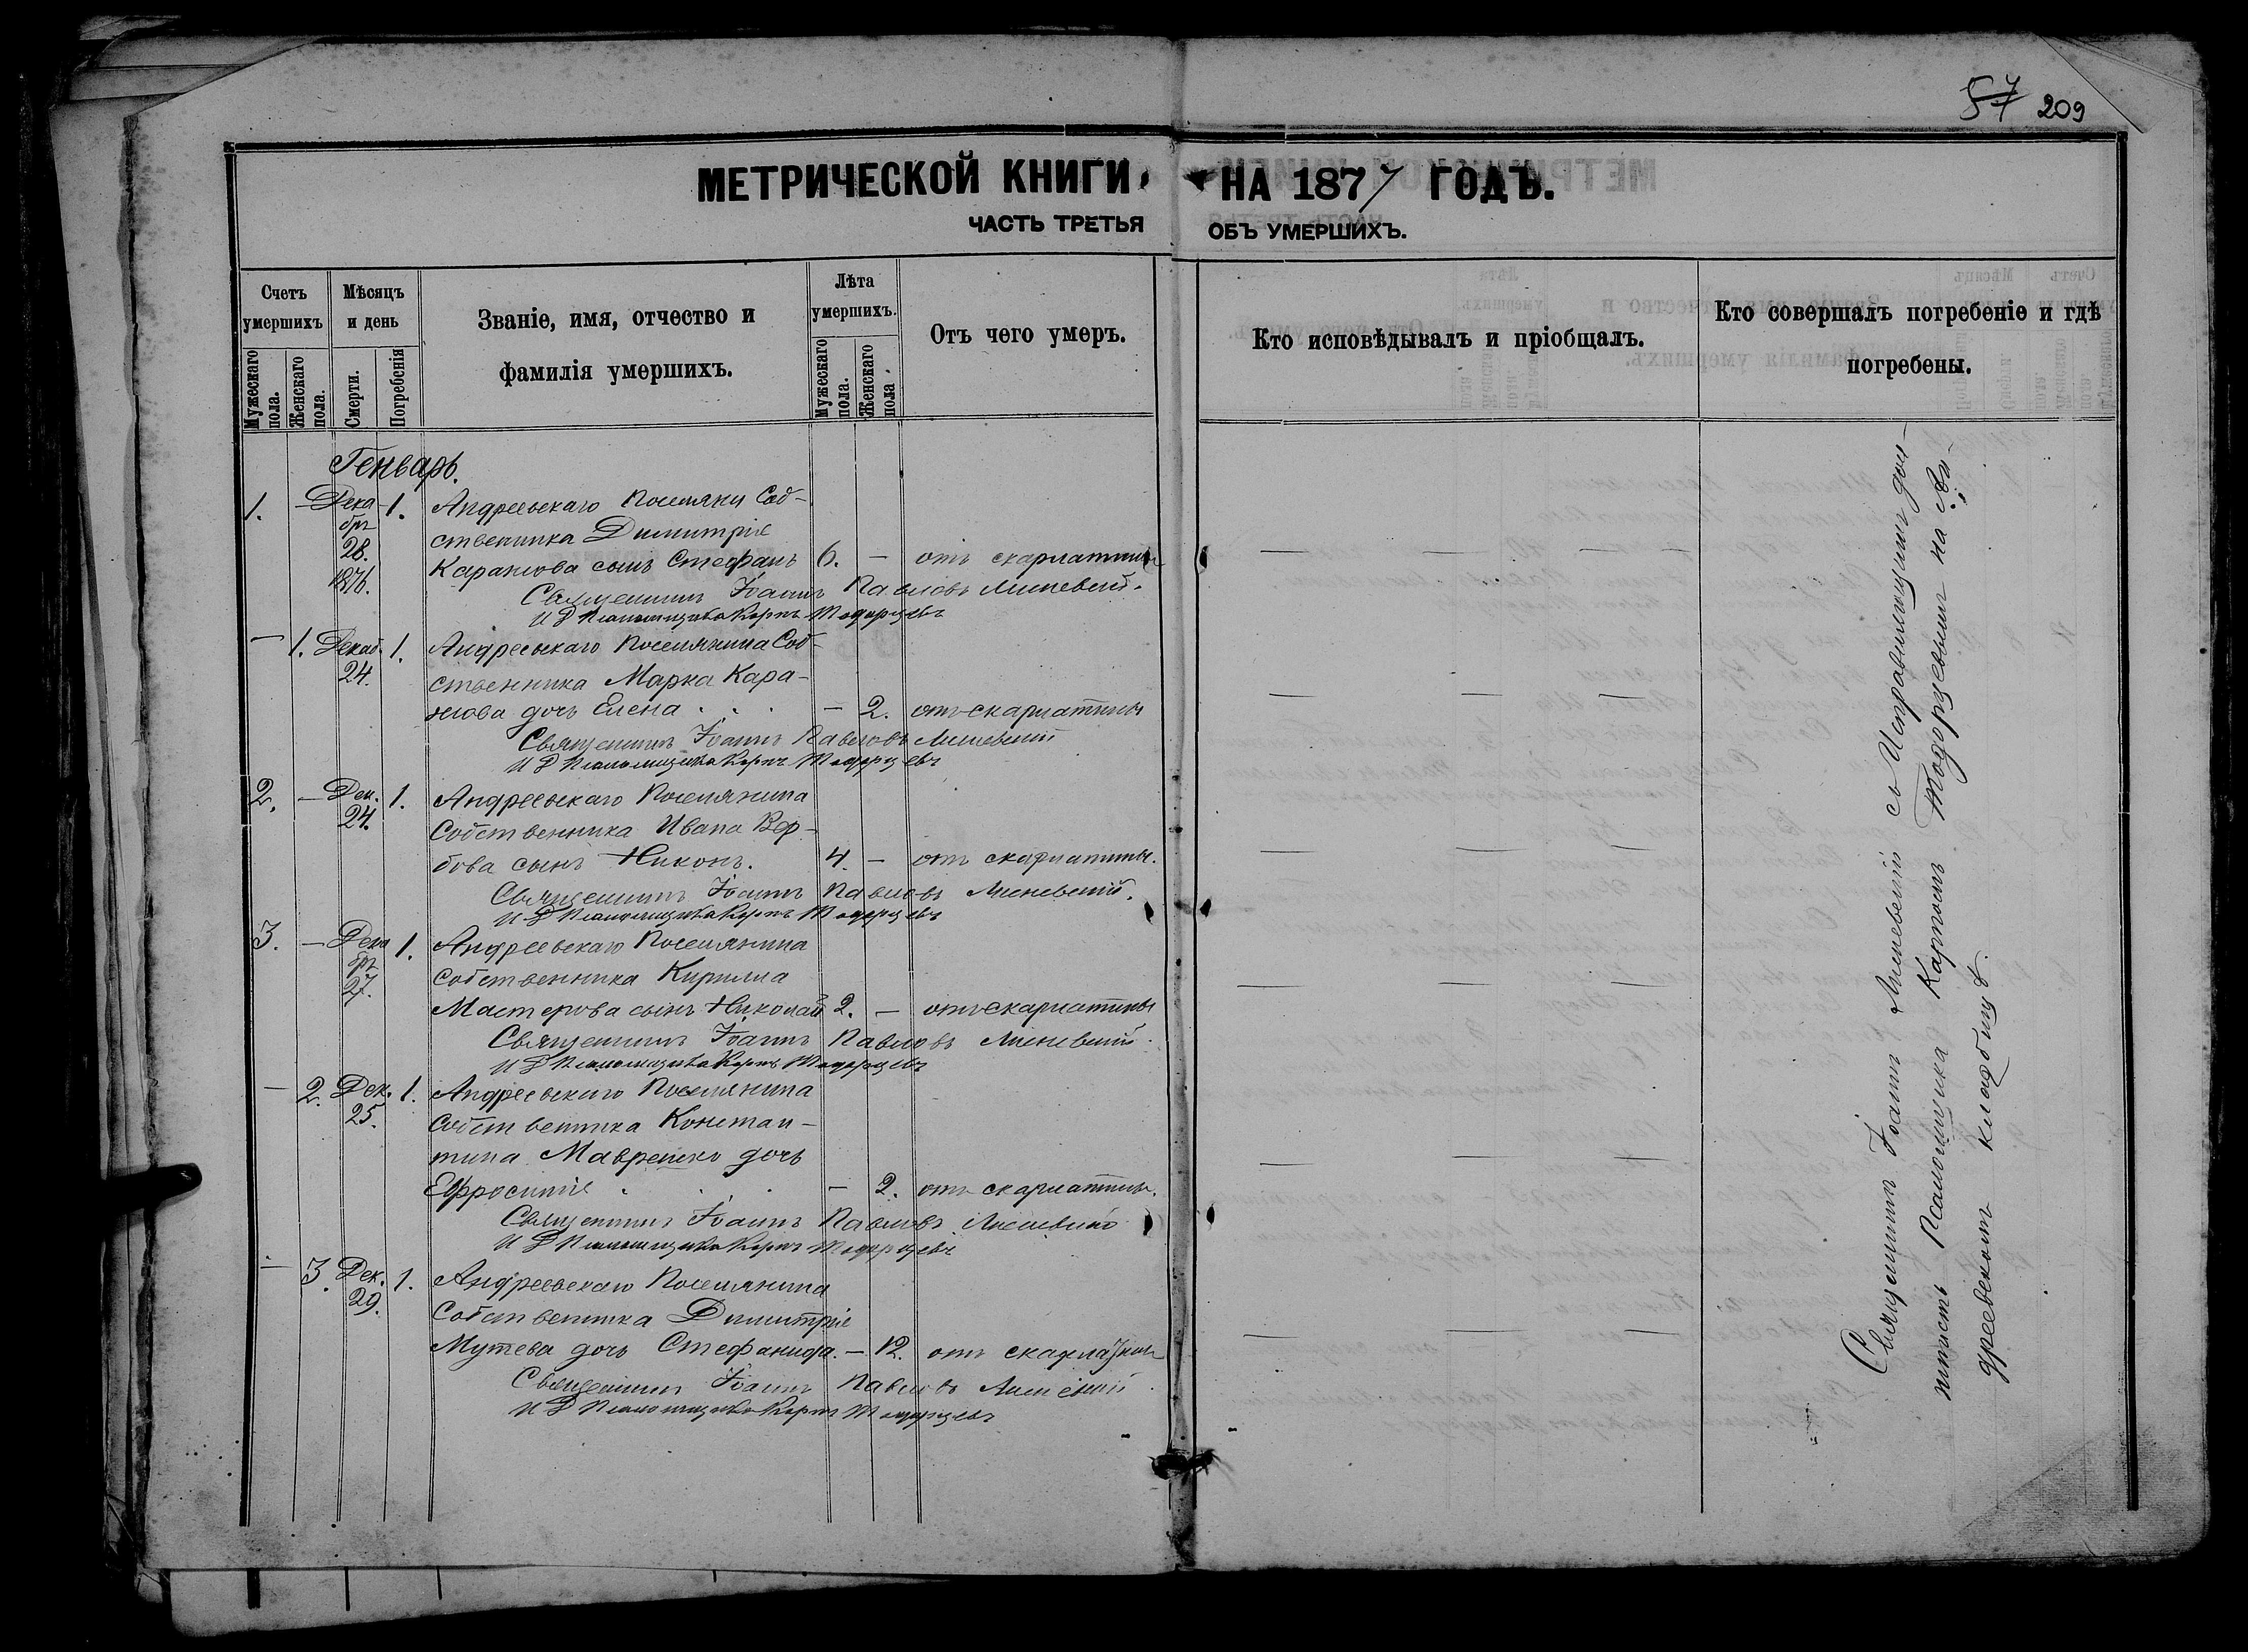 57 209
МЕТРИЧЕСКОЙ КНИГИ НА 1877 ГОДЪ.
ЧАСТЬ ТРЕТЬЯ ОБЪ УМЕРШИХЪ.
Счетъ умершихъ
Мужескаго пола.
Женскаго пола.
Мѣсяцъ и день
Смерти.
Погребенія
Званіе, имя, отчество и фамилія умершихъ.
Лѣта умершихъ.
Мужескаго пола.
Женскаго пола.
Отъ чего умеръ.
Кто исповѣдывалъ и пріобщалъ.
Кто совершалъ погребеніе и гдѣ погребены.
Генварь.
1. — Дека- 1. Андреевскаго Поселяни Соб-
бря ственника Димитрія
28. Каражова сынъ Стефанъ 6. — отъ скарлатины
1876. Священникъ Іоаннъ Павловъ
И Д Псаломщика Карпъ Тодорцевъ
— 1. Декаб. 1. Андреевскаго Поселянина Соб-
24. ственника Марка Кара-
жова дочь Елена . . . — 2. отъ скарлатины
Священникъ Іоаннъ Павловъ
И Д Псаломщика Карпъ Тодорцевъ
2. — Дек. 1. Андреевскаго Поселянина
24. Собственника Ивана Вер-
бова сынъ Никонъ. 4. — отъ скарлатины.
Священникъ Іоаннъ Павловъ
И Д Псаломщика Карпъ Тодорцевъ
3. — Дека 1. Андреевскаго Поселянина
бря собственника Кирилла
27. Мастерова сынъ Николай 2. — отъ скарлатины
Священникъ Іоаннъ Павловъ
И Д Псаломщика Карпъ Тодорцевъ
— 2. Дек. 1. Андреевскаго Поселянина
25. Собственника Констан-
тина Маврешко дочь
Ефросинія . . . — 2. отъ скарлатины.
Священникъ Іоаннъ Павловъ
И Д Псаломщика Карпъ Тодорцевъ
— 3. Дек. 1. Андреевскаго Поселянина
29. Собственника Димитрія
Мутева дочь Стефанида. — 12. отъ скарлатины
Священникъ Іоаннъ Павловъ
И Д Псаломщика Карпъ Тодорцевъ
Священникъ Іоаннъ съ Исправляющимъ дол-
жность Псаломщика Карпомъ Тодорцевымъ на Ан-
дреевскомъ кладбищѣ.